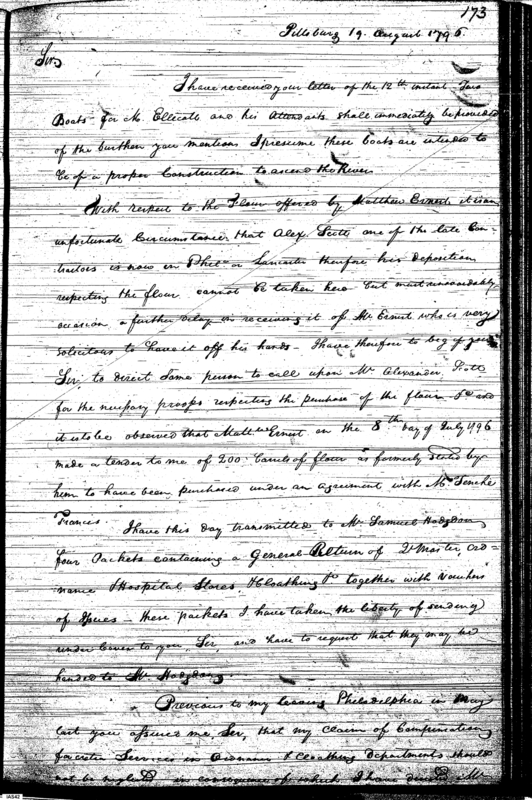 173
Pittsburg 19. August 1796.
Sir,
I have received your letter of the 12th instant. Two
Boats for Mr Ellicott and his Attendants shall immediately be provided
of the burthen you mentions I presume these boats are intended to
be of a proper Construction to ascend the River
With respect to the Flour offered by Matthew Ernest it is an
unfortunate Circumstance that Alex Scott one of the late Con-
tractors is now in Phila or Lancaster therefore his deposition
respecting the flour cannot be taken here but must unavoidably
occasion a further delay in receiving it of Mr Ernest who is very
solicitous to have it off his hands - I have therefore to beg of you
Sir, to direct some person to call upon Mr Alexander Scott
for the necessary proofs respecting the purchase of the flour &c and
it is to be observed that Matthw Ernest on the 8th day of July 1796
made a tender to me of 200 barrels of flour as formerly stated by
him to have been purchased under an agreement with Mr Tenche
Francis
I have this day transmitted to Mr Samuel Hodgdon
four Packets containing a General Return of Qr Master Ord=
nance Hospital Stores & Cloathing &c together with Vouchers
of Issues - these packets I have taken the liberty of sending
under Cover to you, Sir, and have to request that they may be
handed to Mr Hodgdon.
Previous to my leaving Philadelphia in May
last you assured me, Sir, that my claim of Compensation
for extra Services in Ordnance & Cloathing departments should
not be neglected in consequence of which I have Mr
IAS42